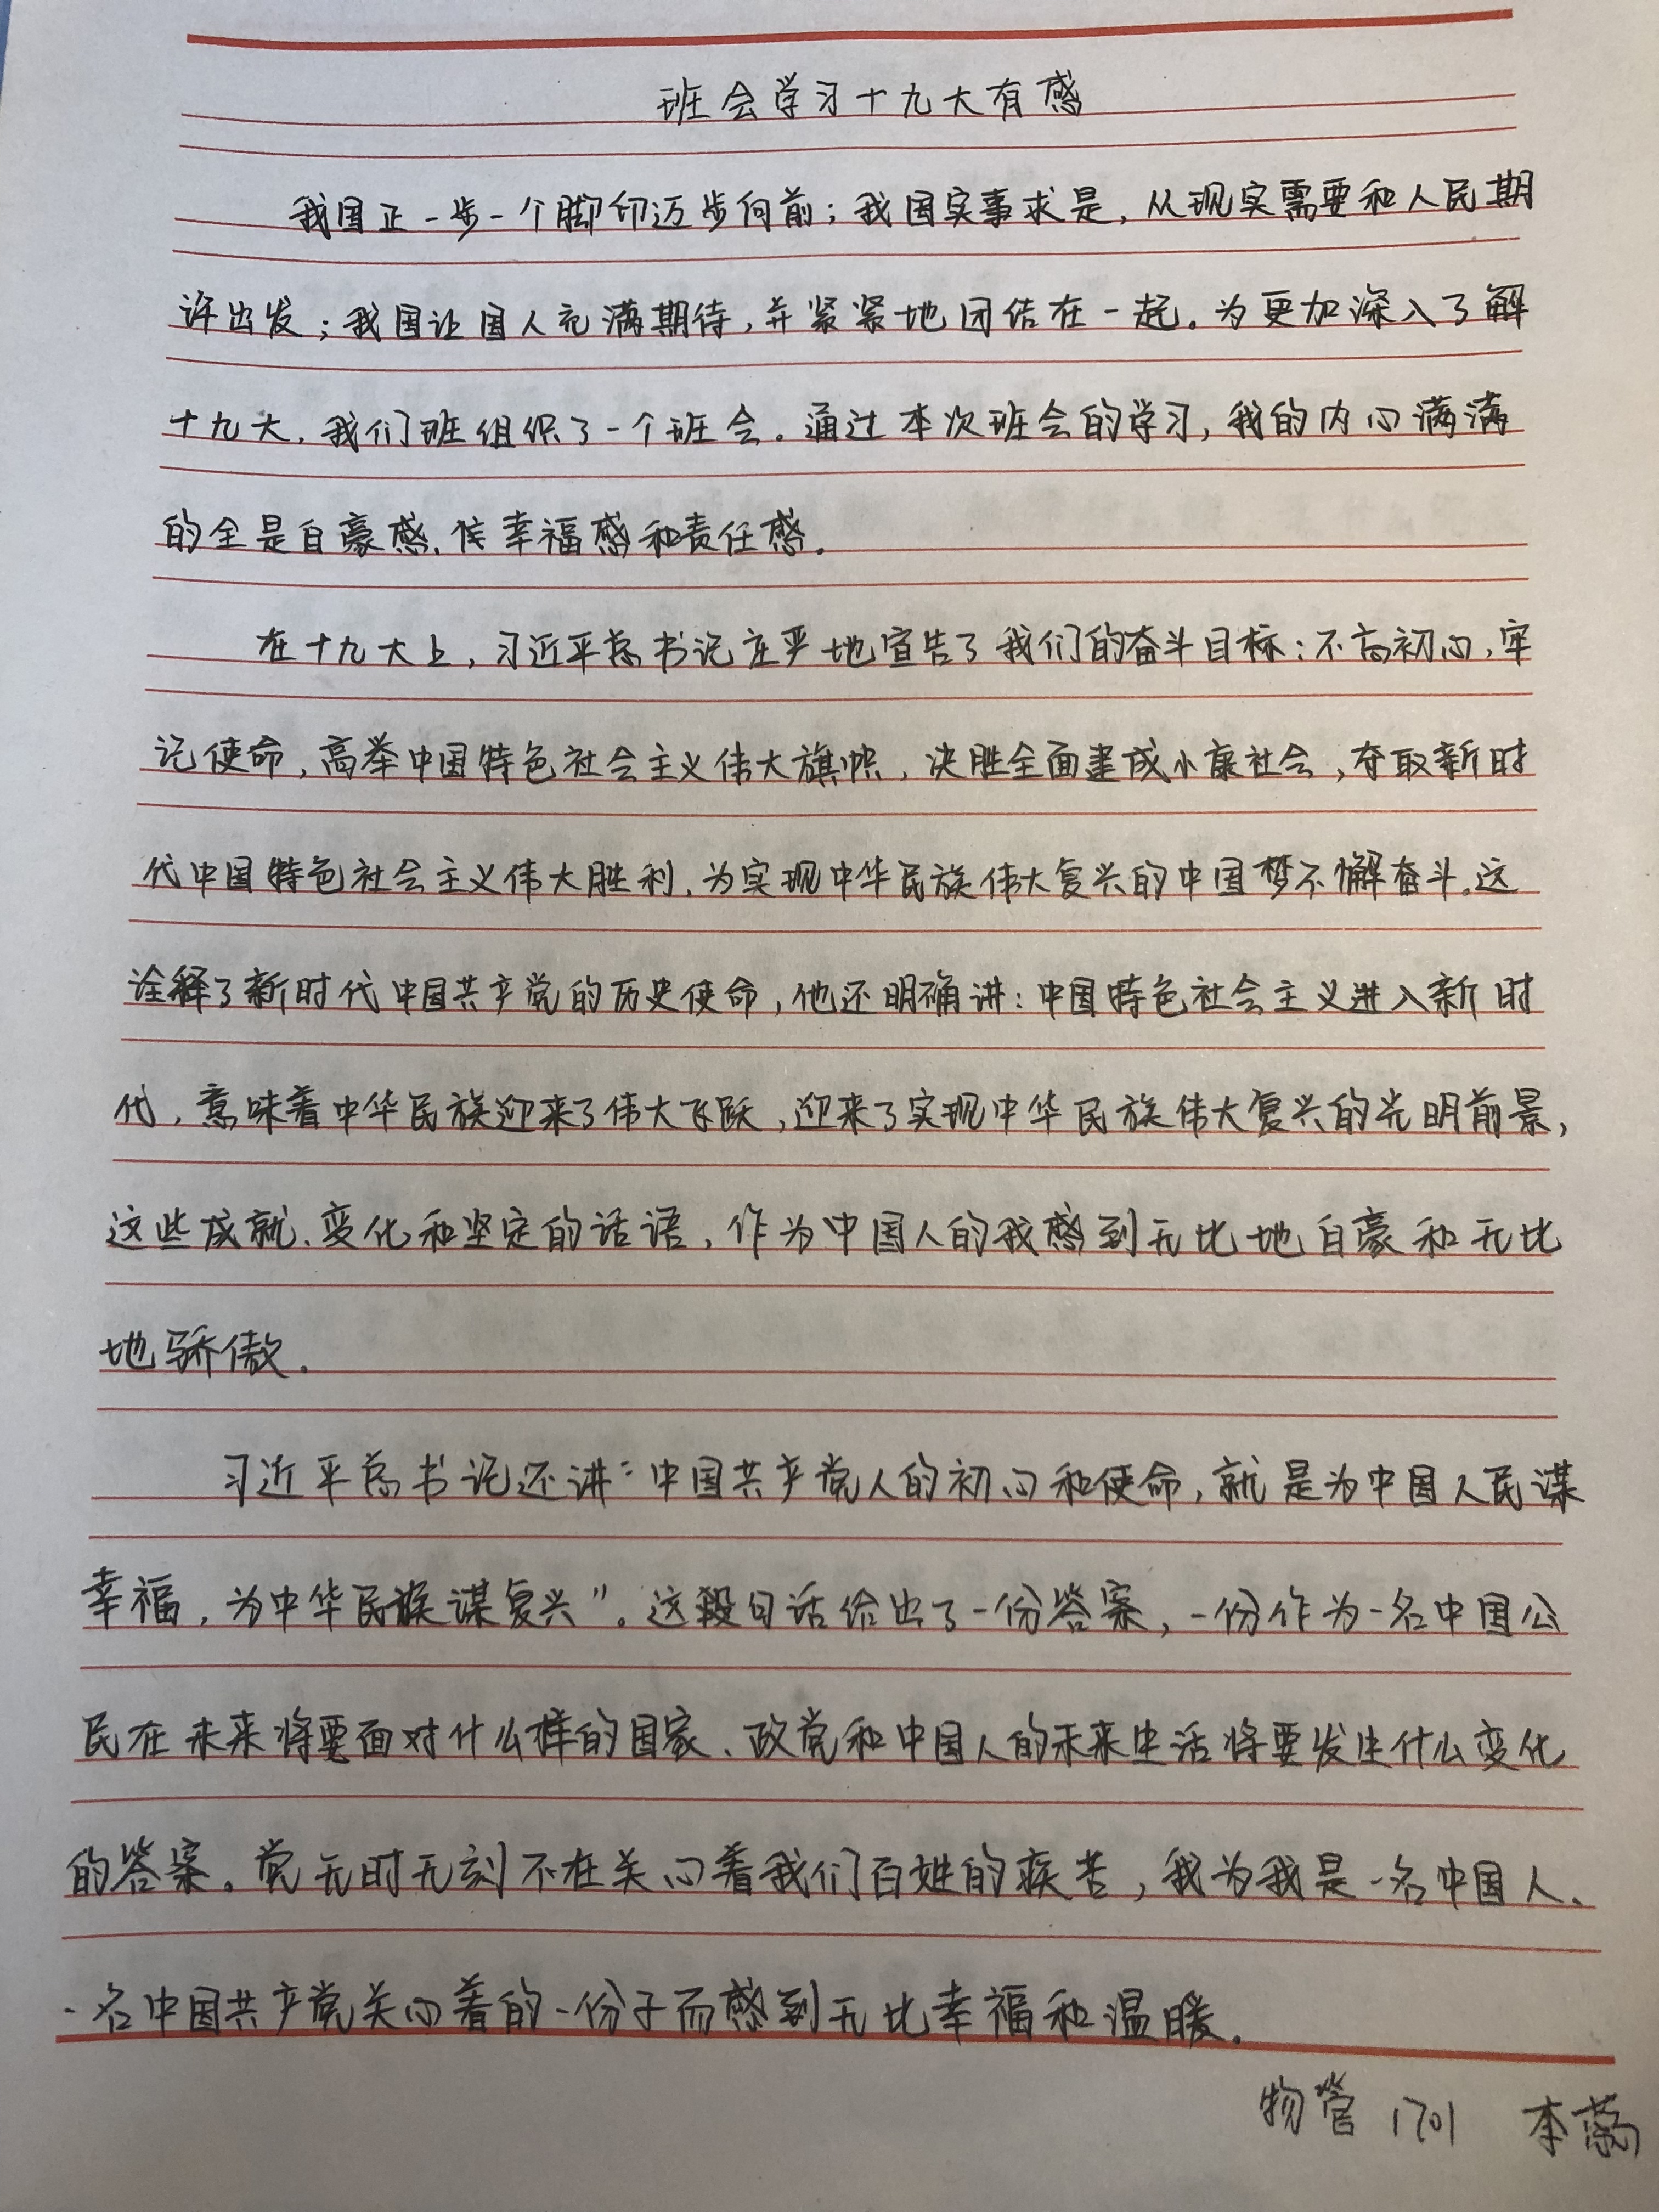 班会学习十九大有感
我国正一步一个脚印迈步向前；我国实事求是，从现实需要和人民期
许出发；我国让国人充满期待，并紧紧地团结在一起。为更加深入了解
十九大，我们班组织了一个班会。通过本次班会的学习，我的内心满满
的全是自豪感、幸福感和责任感。
在十九大上，习近平总书记庄严地宣告了我们的奋斗目标：不忘初心，牢
记使命，高举中国特色社会主义伟大旗帜，决胜全面建成小康社会，夺取新时
代中国特色社会主义伟大胜利，为实现中华民族伟大复兴的中国梦不懈奋斗。这
诠释了新时代中国共产党的历史使命，他还明确讲：中国特色社会主义进入新时
代，意味着中华民族迎来了伟大飞跃，迎来了实现中华民族伟大复兴的光明前景，
这些成就、变化和坚定的话语，作为中国人的我感到无比地自豪和无比
地骄傲。
习近平总书记还讲“中国共产党人的初心和使命，就是为中国人民谋
幸福，为中华民族谋复兴”。这段句话给出了一份答案，一份作为一名中国公
民在未来将要面对什么样的国家、政党和中国人的未来生活将要发生什么变化
的答案。党无时无刻不在关心着我们百姓的疾苦，我为我是一名中国人、
一名中国共产党关心着的一份子而感到无比幸福和温暖。
物管1701